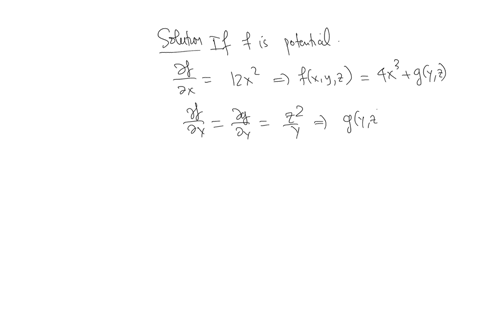 Solution If f is potential.
∂f/∂x = 12x² ⇒ f(x,y,z) = 4x³ + g(y,z)
∂f/∂y = ∂g/∂y = z²/y ⇒ g(y,z